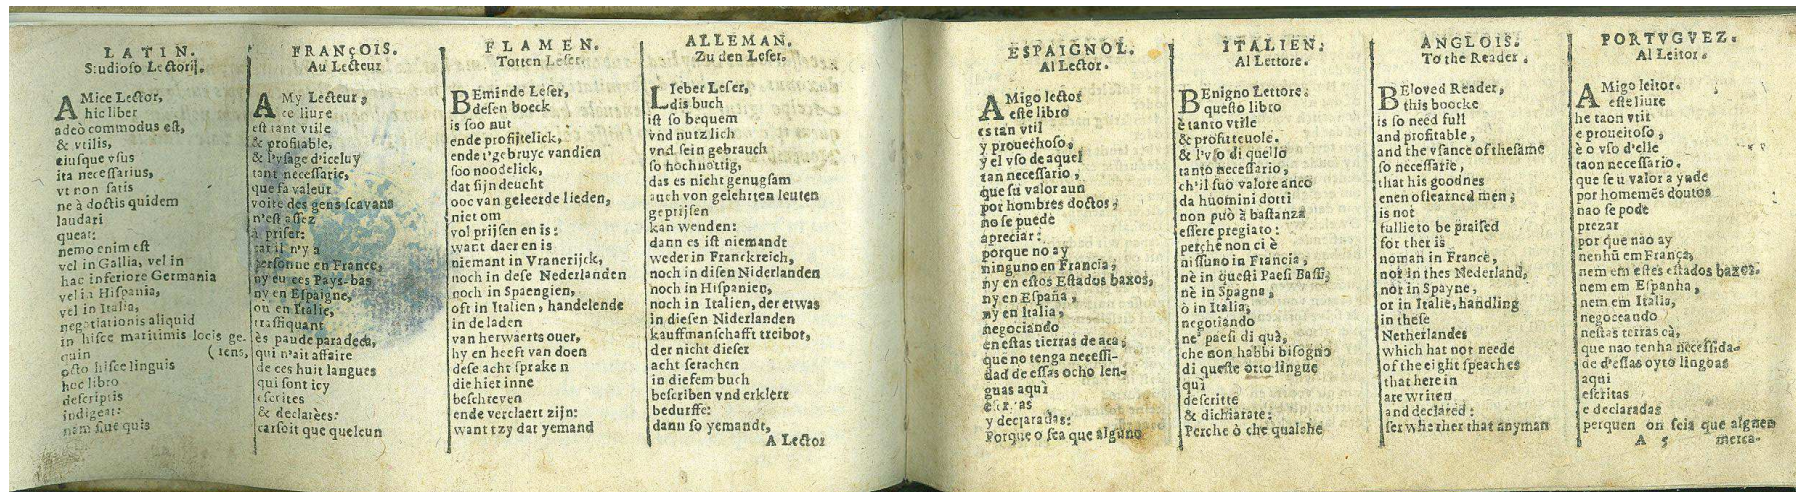 LATIN.
Studioso Lectorij.
AMice Lector,
hic liber
adeò commodus est,
& vtilis,
eiusque vsus
ita necessarius,
vt non satis
ne à doctis quidem
laudari
queat:
nemo enim est
vel in Gallia, vel in
hac inferiore Germania
vel in Hispania,
vel in Italia,
negotiationis aliquid
in hisce maritimis locis ge-
quin (rens,
octo hisce linguis
hoc libro
descriptis
indigeat:
nam siue quis
FRANÇOIS.
Au Lecteur
AMy Lecteur,
ce liure
est tant vtile
& profitable,
& l'vsage d'iceluy
tant necessarie,
que sa valeur
voire des gens scavans
n'est assez
à priser:
car il n'y a
personne en France,
ny en ces Pays-bas
ny en Espaigne,
ou en Italie,
traffiquant
ès pau de para deca,
qui n'ait affaire
de ces huit langues
qui sont icy
escrites
& declarèes:
car soit que quelcun
FLAMEN.
Totten Leser.
BEminde Leser,
desen boeck
is soo nut
ende profijtelick,
ende t'gebruyc vandien
soo noodelick,
dat sijn deucht
ooc van geleerde lieden,
niet om
vol prijsen en is:
want daer en is
niemant in Vranerijck,
noch in dese Nederlanden
noch in Spaengien,
oft in Italien, handelende
in de laden
van herwaerts ouer,
hy en heeft van doen
dese acht spraken
die hier inne
beschreven
ende verclaert zijn:
want tzy dat yemand
ALLEMAN.
Zu den Leser.
LIeber Leser,
dis buch
ist so bequem
vnd nutzlich
vnd sein gebrauch
so hochnottig,
das es nicht genugsam
auch von gelehrten leuten
geprijsen
kan wenden:
dann es ist niemandt
weder in Franckreich,
noch in disen Niderlanden
noch in Hispanien,
noch in Italien, der etwas
in diesen Niderlanden
kauffmanschafft treibot,
der nicht dieser
acht serachen
in diesem buch
bescriben vnd erklerr
bedursse:
dann so yemandt,
A Lector
ESPAIGNOL.
Al Lector.
AMigo lector
este libro
es tan vtil
y prouechoso,
y el vso de aquel
tan necessario,
que su valor aun
por hombres doctos,
no se puede
apreciar:
porque no ay
ninguno en Francia,
ny en estos Estados baxos,
ny en España,
ny en Italia,
negociando
en estas tierras de aca,
que no tenga necessi-
dad de essas ocho len-
guas aquì
y declaradas:
Porque o sea que alguno
ITALIEN.
Al Lettore.
BEnigno Lettore,
questo libro
è tanto vtile
& profitteuole.
& l'vso di quello
tanto necessario,
ch'il suo valore anco
da huomini dotti
non può à bastanza
essere pregiato:
perche non ci è
nissuno in Francia,
nè in questi Paesi Bassi,
nè in Spagna,
ò in Italia,
negotiando
ne' paesi di quà,
che non habbi bisogno
di queste otto lingue
qui
descritte
& dichiarate:
Perche ò che qualche
ANGLOIS.
To the Reader.
BEloved Reader,
this boocke
is so need full
and profitable,
and the vsance of thesame
so necessarie,
that his goodnes
enen of learned men,
is not
fullie to be praised
for ther is
noman in France,
nor in thes Nederland,
nor in Spayne,
or in Italie, handling
in these
Netherlandes
which hat not neede
of the eight speaches
that here in
are writen
and declared:
fer whe rher that anyman
PORTVGVEZ.
Al Leitor.
AMigo leitor.
este liure
he taon vtit
e proueitoso,
è o vso d'elle
taon necessario.
que seu valor aynde
por homemẽs doutos
nao se pode
prezar
por que nao ay
nenhũ em França,
nem em estes estados baxos.
nem em Espanha,
nem em Italia,
negoceando
nestas terras cà,
que nao tenha necessida-
de d'essas oyto lingoas
aqui
escritas
e declaradas
perquen on seia que alguen
A 5 merca-